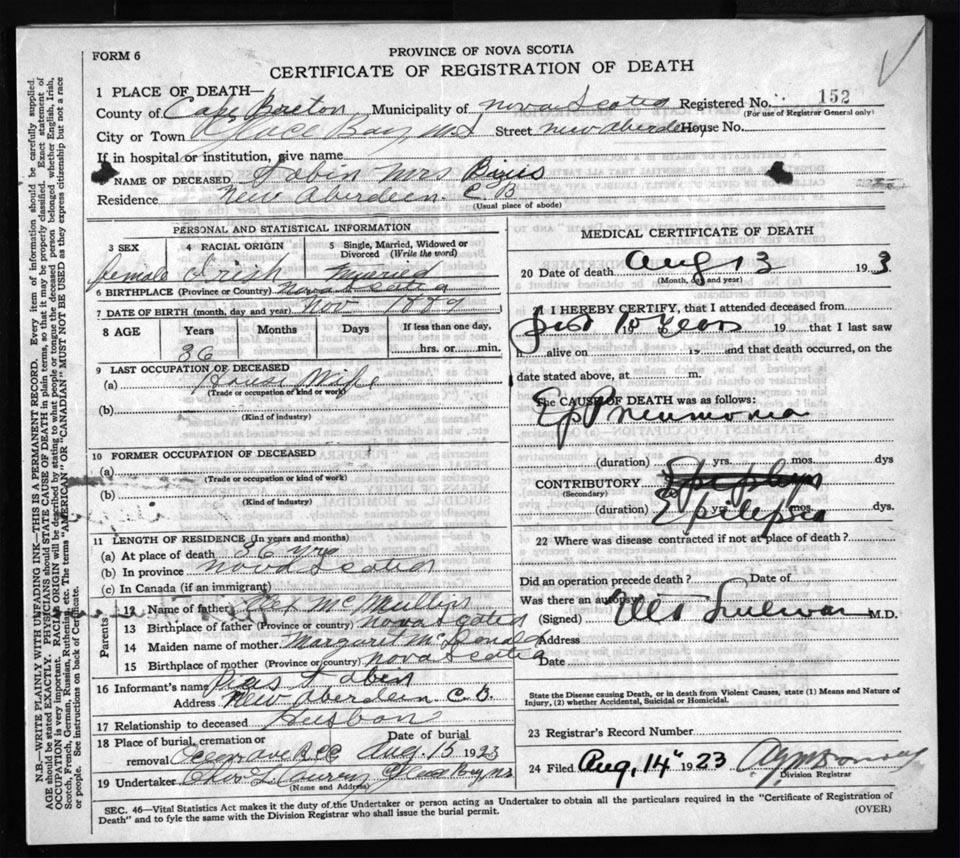 FORM 6
PROVINCE OF NOVA SCOTIA
CERTIFICATE OF REGISTRATION OF DEATH
1 PLACE OF DEATH—
County of Cape Breton Municipality of Nova Scotia Registered No. 152
(For use of Registrar General only)
City or Town Glace Bay Street New Aberdeen House No.
If in hospital or institution, give name
2 NAME OF DECEASED Tobin Mrs
Residence New Aberdeen. C. B
(Usual place of abode)
PERSONAL AND STATISTICAL INFORMATION
3 SEX 4 RACIAL ORIGIN 5 Single, Married, Widowed or Divorced (Write the word)
female Irish Married
6 BIRTHPLACE (Province or Country) Nova Scotia
7 DATE OF BIRTH (month, day and year) Nov
8 AGE Years Months Days If less than one day,
36 hrs. or min.
9 LAST OCCUPATION OF DECEASED
(a) House Wife
(Trade or occupation or kind or work)
(b)
(Kind of industry)
10 FORMER OCCUPATION OF DECEASED
(a)
(Trade or occupation or kind of work)
(b)
(Kind of industry)
11 LENGTH OF RESIDENCE (In years and months)
(a) At place of death 36 yrs
(b) In province Nova Scotia
(c) In Canada (if an immigrant)
Parents
12 Name of father Alex McMullin
13 Birthplace of father (Province or country) Nova Scotia
14 Maiden name of mother Margaret McDonald
15 Birthplace of mother (Province or country) Nova Scotia
16 Informant's name Pius Tobin
Address New Aberdeen C. B.
17 Relationship to deceased Husban
18 Place of burial, cremation or removal Date of burial
Aug. 15 1923
19 Undertaker Glace Bay
(Name and Address)
MEDICAL CERTIFICATE OF DEATH
20 Date of death Aug 13 19 3
(Month, day and year)
21 I HEREBY CERTIFY, that I attended deceased from
19 10 years 19 that I last saw
h alive on 19 and that death occurred, on the
date stated above, at m.
The CAUSE OF DEATH was as follows:
Pneumonia
(duration) yrs. mos. dys
CONTRIBUTORY
(Secondary)
(duration) yrs. mos. dys.
Epilepsia
22 Where was disease contracted if not at place of death?
Did an operation precede death? Date of
Was there an autopsy?
(Signed) M.D.
Address
Date
State the Disease causing Death, or in death from Violent Causes, state (1) Means and Nature of
Injury, (2) whether Accidental, Suicidal or Homicidal.
23 Registrar's Record Number
24 Filed Aug. 14" 1923
Division Registrar
SEC. 46—Vital Statistics Act makes it the duty of the Undertaker or person acting as Undertaker to obtain all the particulars required in the "Certificate of Registration of
Death" and to fyle the same with the Division Registrar who shall issue the burial permit. (OVER)
N.B.—WRITE PLAINLY WITH UNFADING INK—THIS IS A PERMANENT RECORD. Every item of information should be carefully supplied.
AGE should be stated EXACTLY. PHYSICIANS should STATE CAUSE OF DEATH in plain terms, so that it may be properly classified. Exact statement of
OCCUPATION is very important. RACIAL ORIGIN will be described by stating to what people or tongue the deceased person belonged whether English, Irish,
Scotch, French, German, Russian, Ruthenian, etc. The terms "AMERICAN" OR "CANADIAN" MUST NOT BE USED as they express citizenship but not a race
or people. See instructions on back of Certificate.